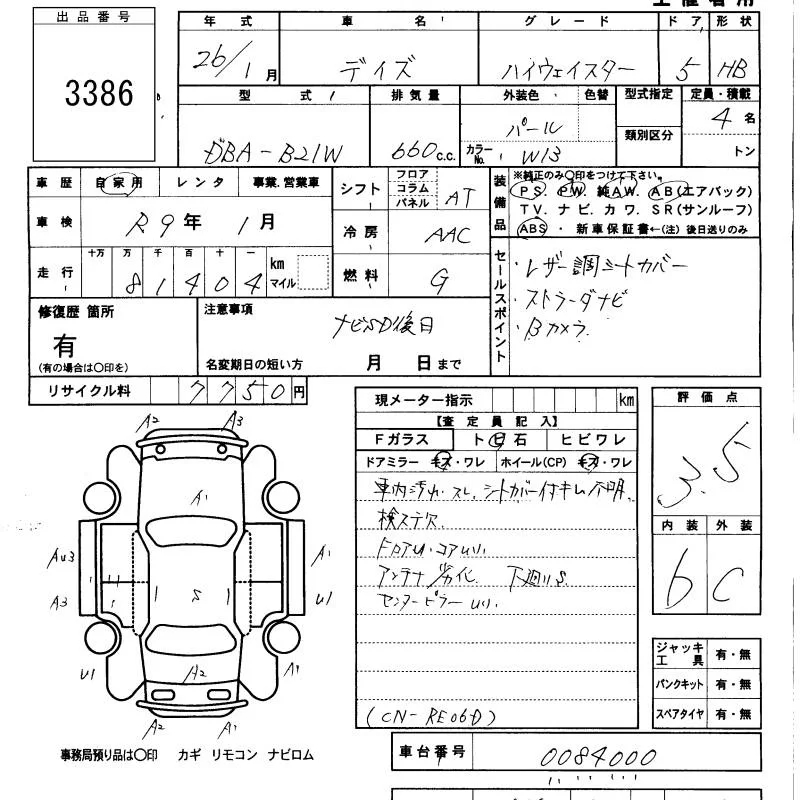 出品番号
3386
年式 車名 グレード ドア 形状
26/1月 デイズ ハイウェイスター 5 HB
型式 排気量 外装色 色替 型式指定 定員・積載
類別区分
DBA-B21W 660c.c. パール カラーNo. W13 4名
トン
車歴 自家用 レンタ 事業.営業車
車検 R9年 1月
走行 十万 万 千 百 十 一
81404 km マイル
シフト フロア コラム パネル AT
冷房 AAC
燃料 G
装備品
※純正のみ〇印をつけて下さい。
PS. PW. 純AW. AB(エアバック)
TV. ナビ. カワ. SR(サンルーフ)
ABS ・ 新車保証書←(注) 後日送りのみ
セールスポイント
・レザー調シートカバー
・ストラーダナビ
・Bカメラ
修復歴 箇所
有
(有の場合は〇印を)
注意事項
ナビSD後日
名変期日の短い方 月 日まで
リサイクル料 7750円
現メーター指示 km
【査定員記入】
Fガラス ト日石 ヒビワレ
ドアミラー キズ・ワレ ホイール(CP) キズ・ワレ
車内汚れ・スレ、シートカバー付キム不明
検ステ欠
FロアU・コアU小
アンテナ劣化 下廻りS
センターピラーU小
(CN-RE06D)
評価点
3.5
内装 外装
6 C
ジャッキ工具 有・無
パンクキット 有・無
スペアタイヤ 有・無
A2 A3
A1
AU3 A1
A3 S U1
U1 A2 A1
A2 A1
事務局預り品は〇印 カギ リモコン ナビロム
車台番号 0084000